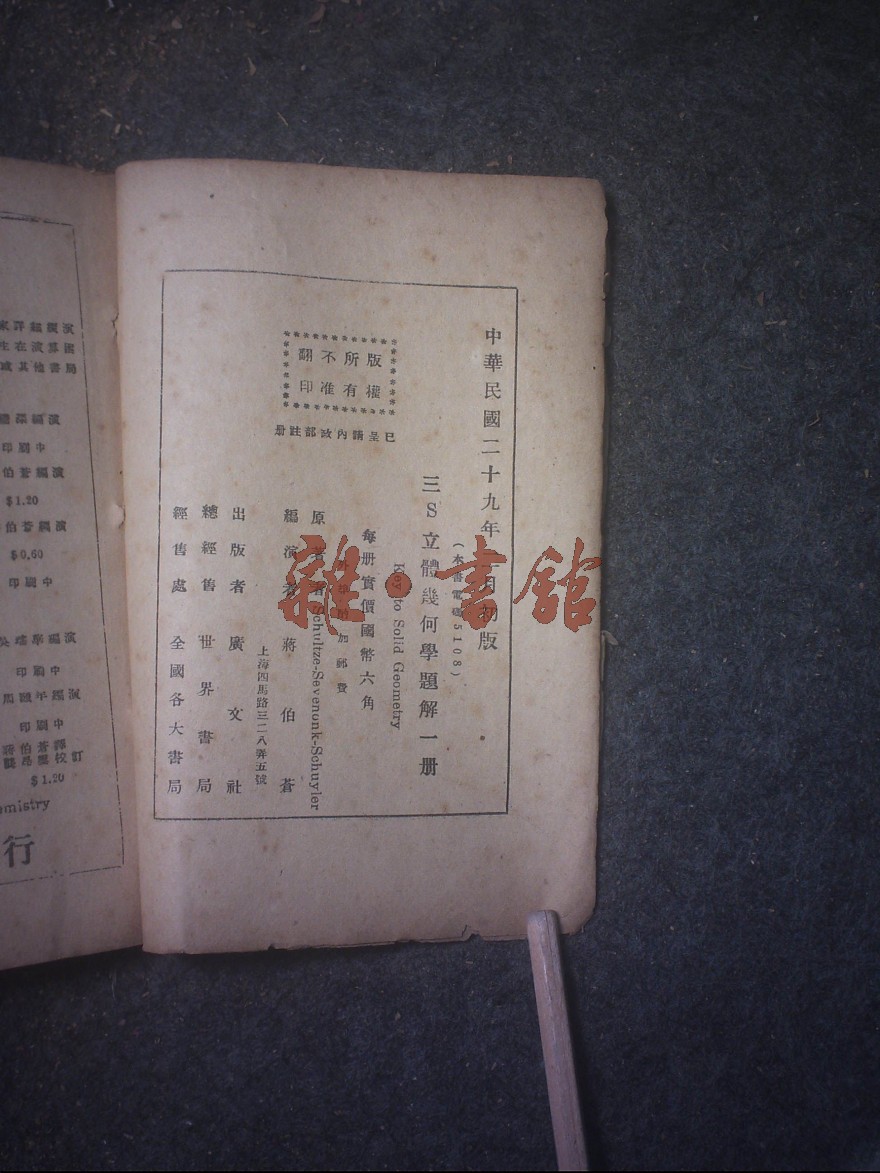 中華民國二十九年 月初版
(本書電碼5108)
三S立體幾何學題解一册
Key to Solid Geometry
每册實價國幣六角
外埠酌加郵費
版權所有
不准翻印
已呈請內政部註册
原著者 Schultze-Sevenonk-Schuyler
編演者 蔣伯蒼
上海四馬路三二八弄五號
出版者 廣文社
總經售 世界書局
經售處 全國各大書局
雜·書館
演
生在演算困
或其他書局
編演
印刷中
伯蒼編演
$1.20
伯蒼編演
$0.60
印刷中
編演
印刷中
印刷中
蔣伯蒼譯
校訂
$1.20
emistry
行